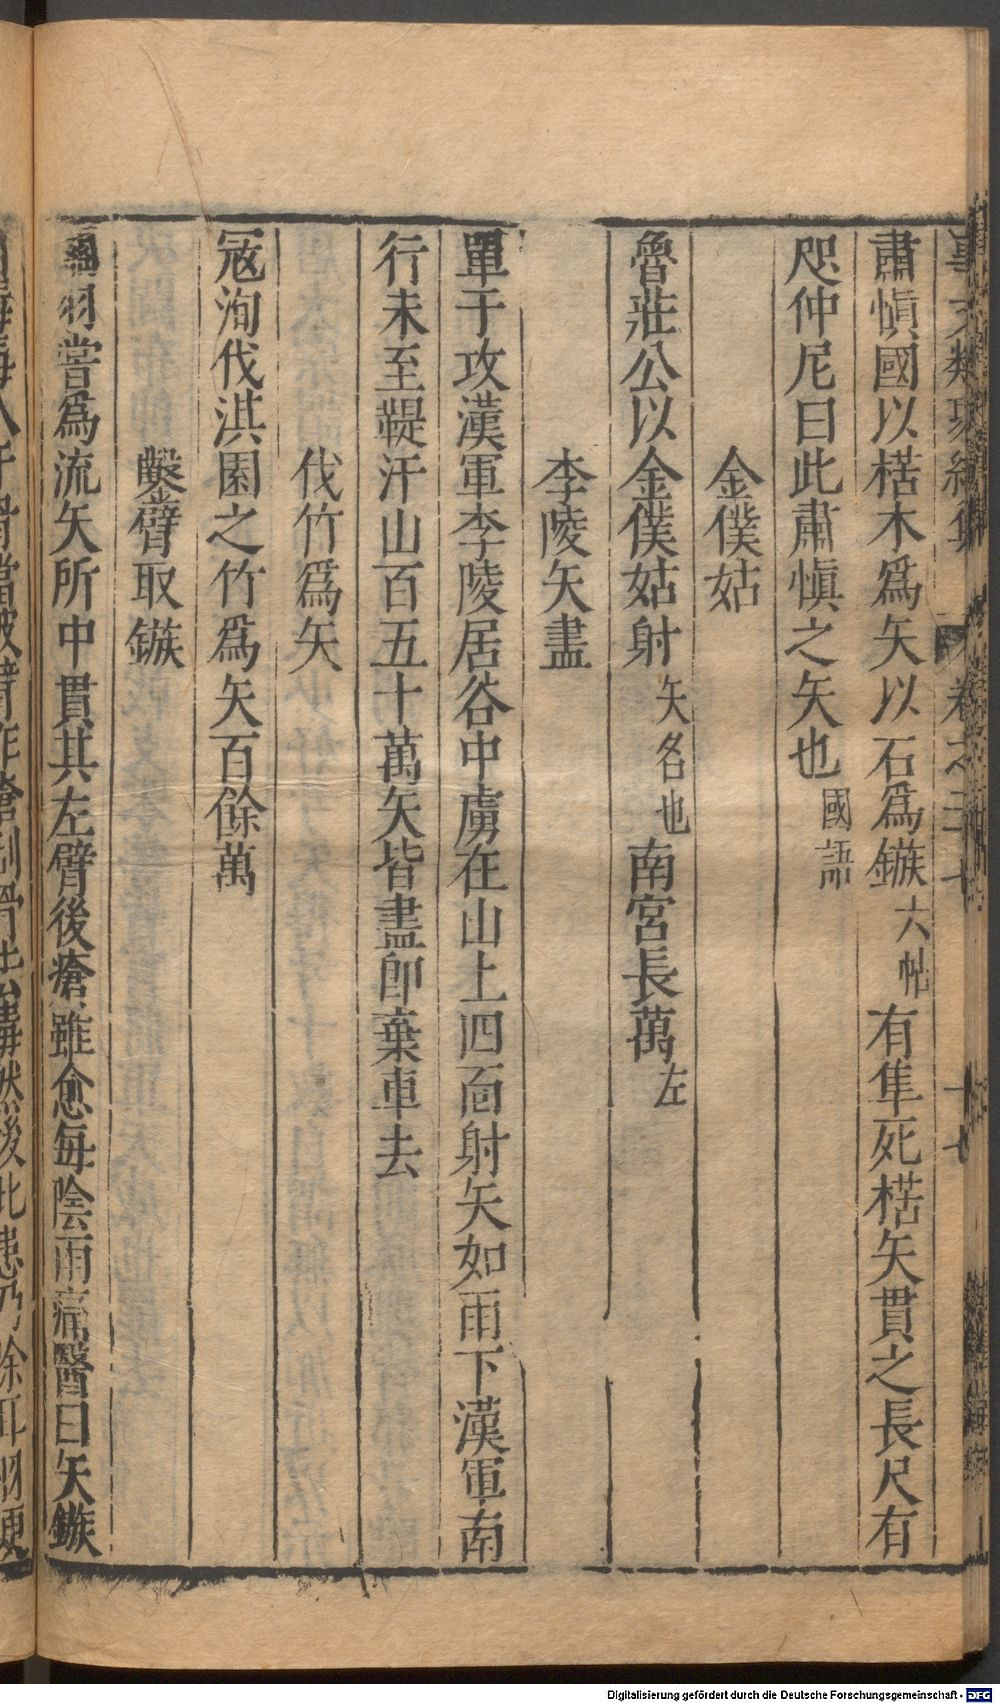 事文類聚續集 卷之二十七 十七
肅慎國以楛木爲矢以石爲鏃六帖有隼死楛矢貫之長尺有
咫仲尼曰此肅慎之矢也國語
金僕姑
魯莊公以金僕姑射矢名也南宮長萬左
李陵矢盡
單于攻漢軍李陵居谷中虜在山上四面射矢如雨下漢軍南
行未至鞮汗山百五十萬矢皆盡卽棄車去
伐竹爲矢
冦洵伐淇園之竹爲矢百餘萬
鑿臂取鏃
關羽嘗爲流矢所中貫其左臂後瘡雖愈每陰雨痛醫曰矢鏃
Digitalisierung gefördert durch die Deutsche Forschungsgemeinschaft - DFG